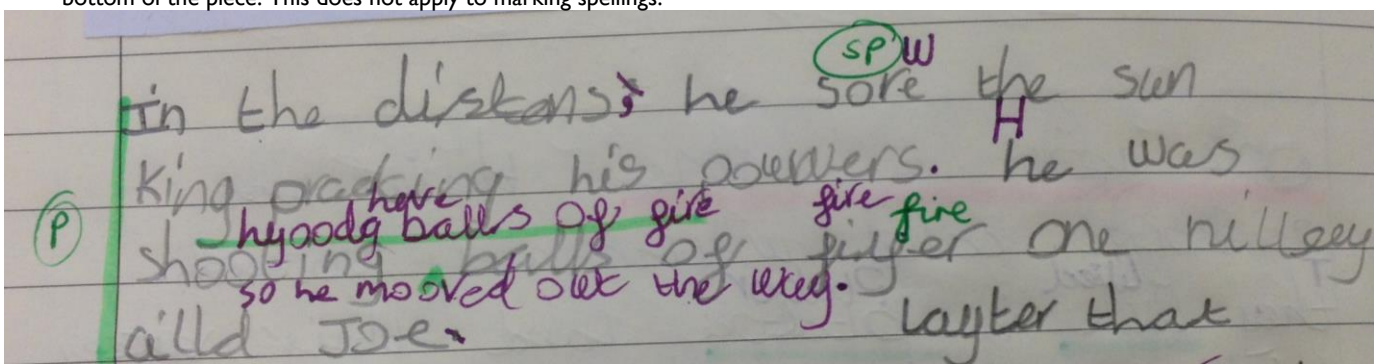 bottom of the piece. This does not apply to marking spellings.
sp w
In the distans, he sore the sun
H
King pracking his pouwers. he was
have
P hyoodg balls of fire fire fire
shooting balls of fiyer one nilleey
so he mooved out the way.
cilld Joe. Layter that